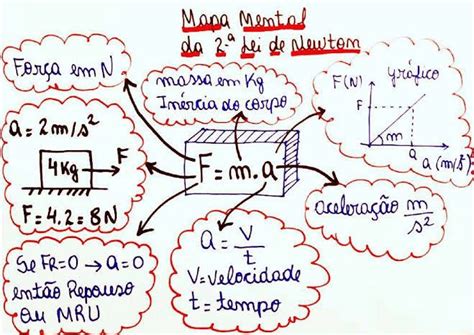 Mapa Mental
da 2.ª Lei de Newton
Força em N
massa em Kg
Inércia do corpo
F(N)
gráfico
F
m
a
a (m/s²)
a = 2m/s²
4Kg
F
F = 4.2 = 8N
F = m.a
aceleração m/s²
Se FR=0 → a=0
então Repouso
ou MRU
a = V/t
V = Velocidade
t = tempo